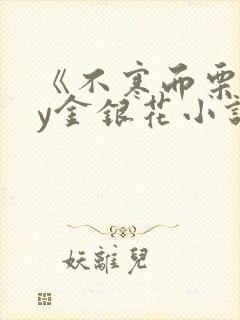 《不寒而栗
y金银花小説
妖離兒